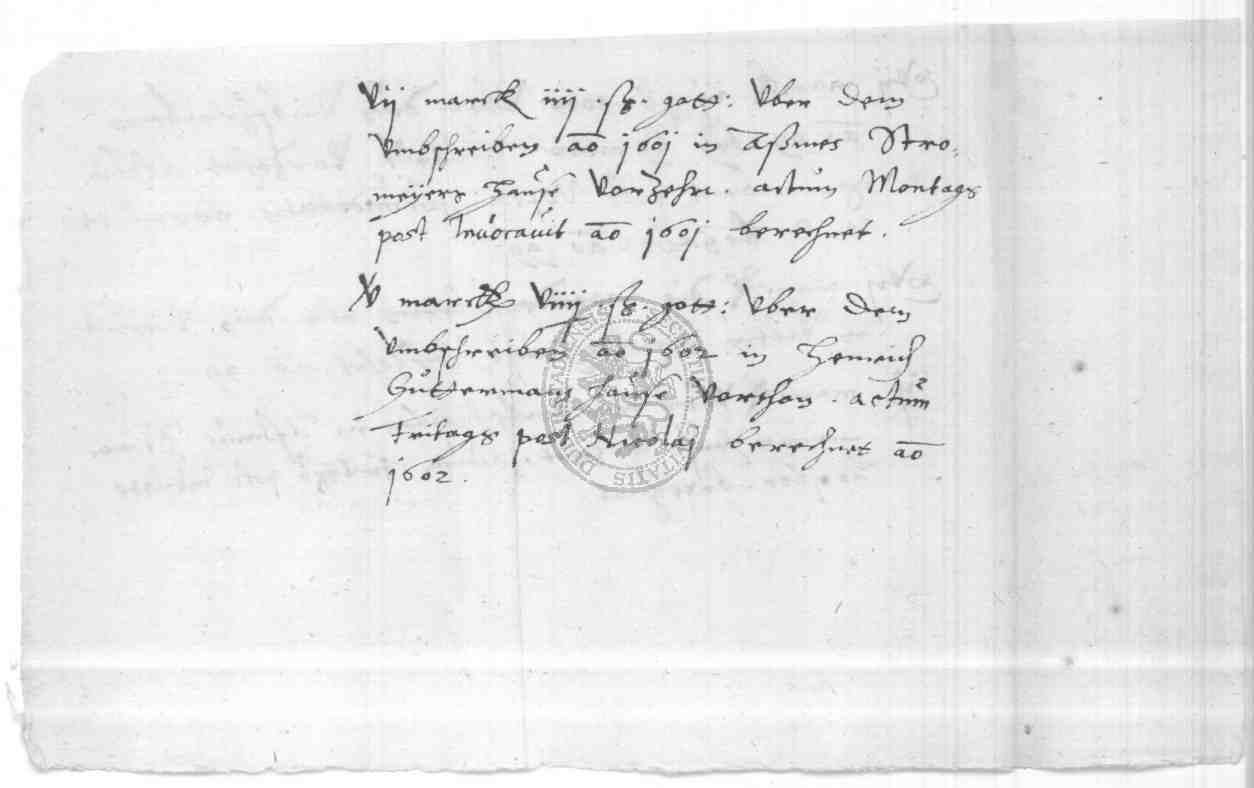 vij marck iiij ß. gott: vber dem
vmbschreiben aõ 1601 in Aßmes Stro,
meyers Hause vorzehrt. actum Montags
post Inuocauit aõ 1601 berechnet.
xv marck viiij ß. gott: vber dem
vmbschreiben aõ 1602 in Henrich
Guttermans Hause verthan. actum
Fritags post Nicolaj berechnet aõ
1602.
CIVITATIS